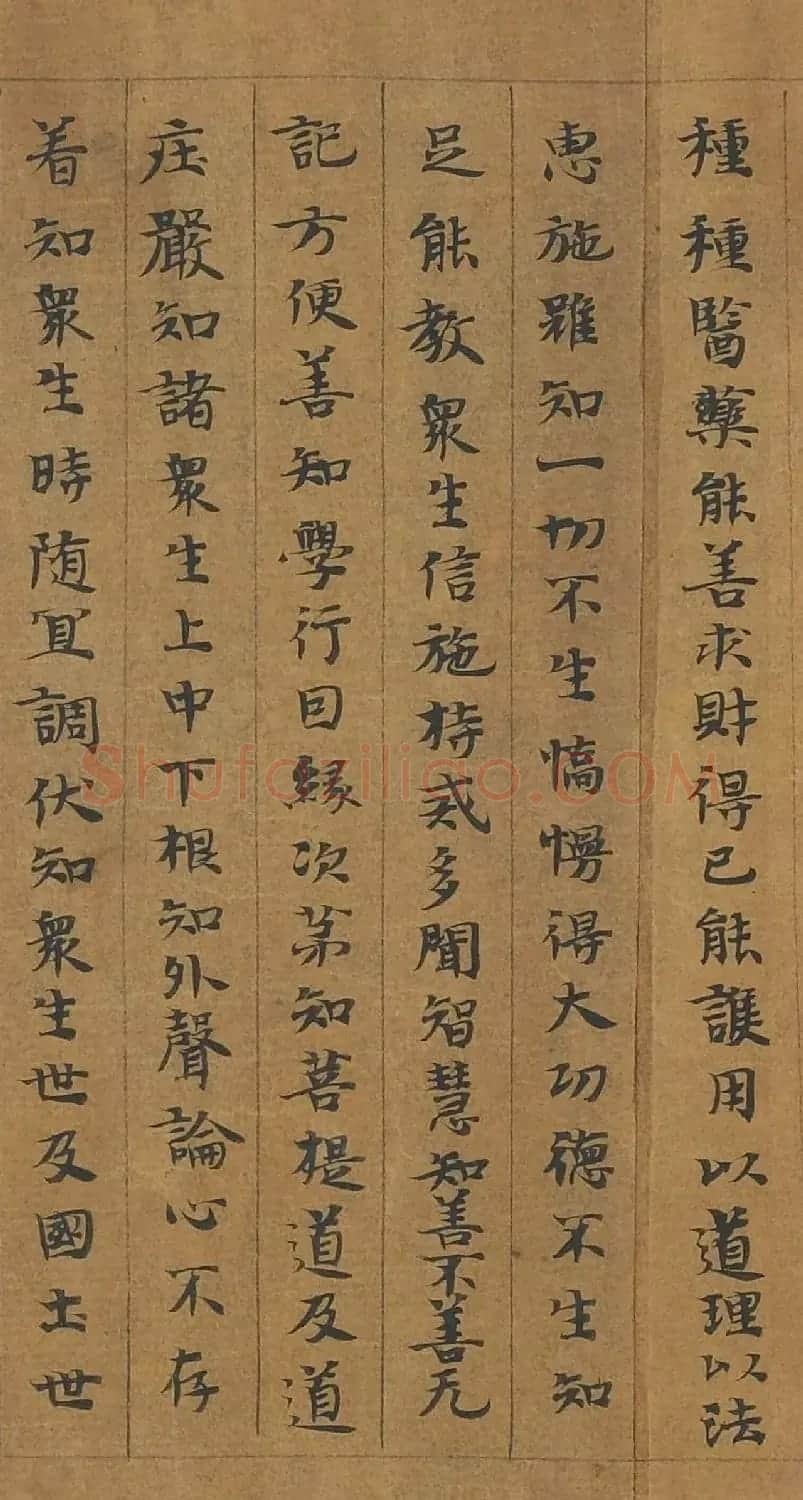 種種醫藥能善求財得已能護用以道理以法
恵施雖知一切不生憍慢得大功德不生知
足能教衆生信施持戒多聞智慧知善不善无
記方便善知學行因縁次苐知菩提道及道
庄嚴知諸衆生上中下根知外聲論心不存
着知衆生時随宜調伏知衆生世及國土世
Shufaziliao.COM